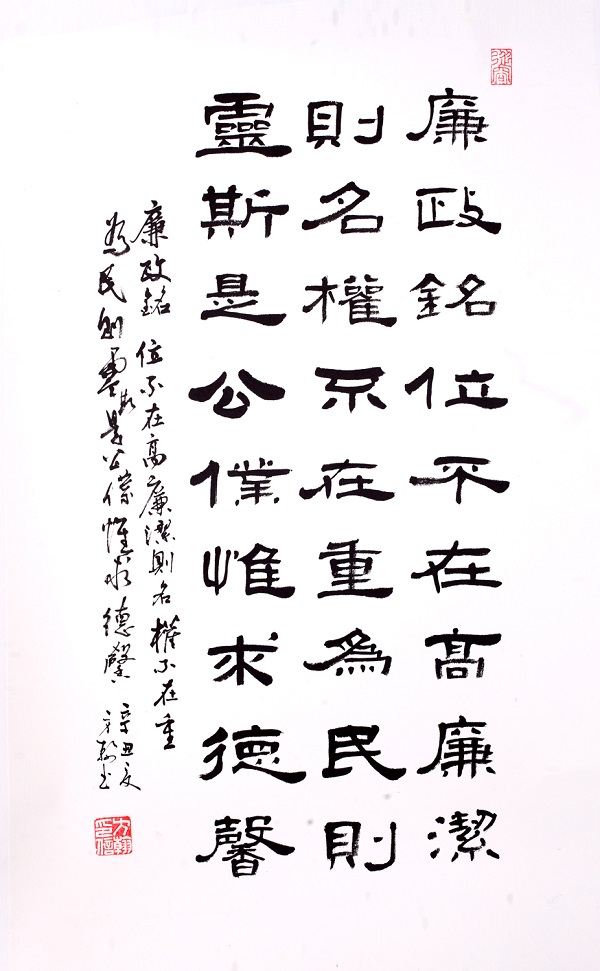 廉政銘位不在高廉潔
則名權不在重為民則
靈斯是公僕惟求德馨
廉政銘 位不在高廉潔則名權不在重
為民則靈斯是公僕惟求德馨 辛丑夏
方翰書
方翰印信